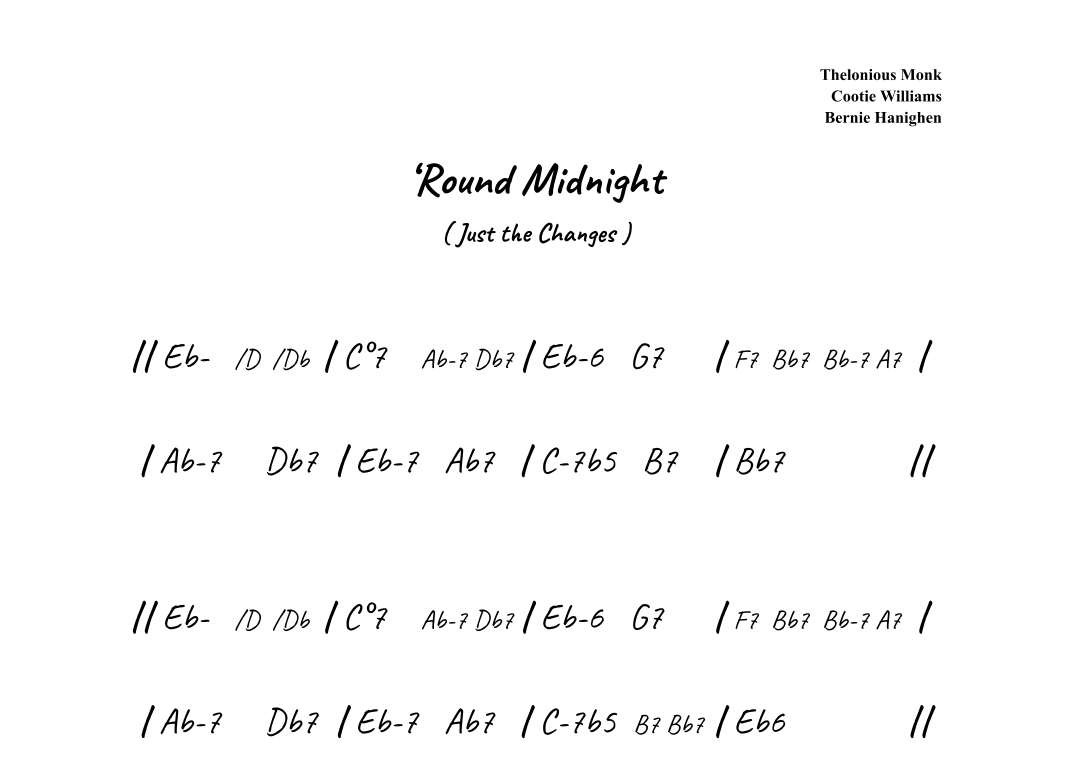 Thelonious Monk
Cootie Williams
Bernie Hanighen
‘Round Midnight
( Just the Changes )
|| Eb- /D /Db | C°7 Ab-7 Db7 | Eb-6 G7 | F7 Bb7 Bb-7 A7 |
| Ab-7 Db7 | Eb-7 Ab7 | C-7b5 B7 | Bb7 ||
|| Eb- /D /Db | C°7 Ab-7 Db7 | Eb-6 G7 | F7 Bb7 Bb-7 A7 |
| Ab-7 Db7 | Eb-7 Ab7 | C-7b5 B7 Bb7 | Eb6 ||